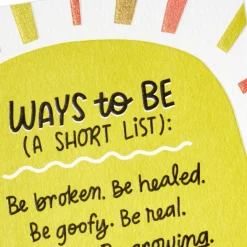 WAYS to BE
(A SHORT LiST):
Be broken. Be healed.
Be goofy. Be real.
growing.